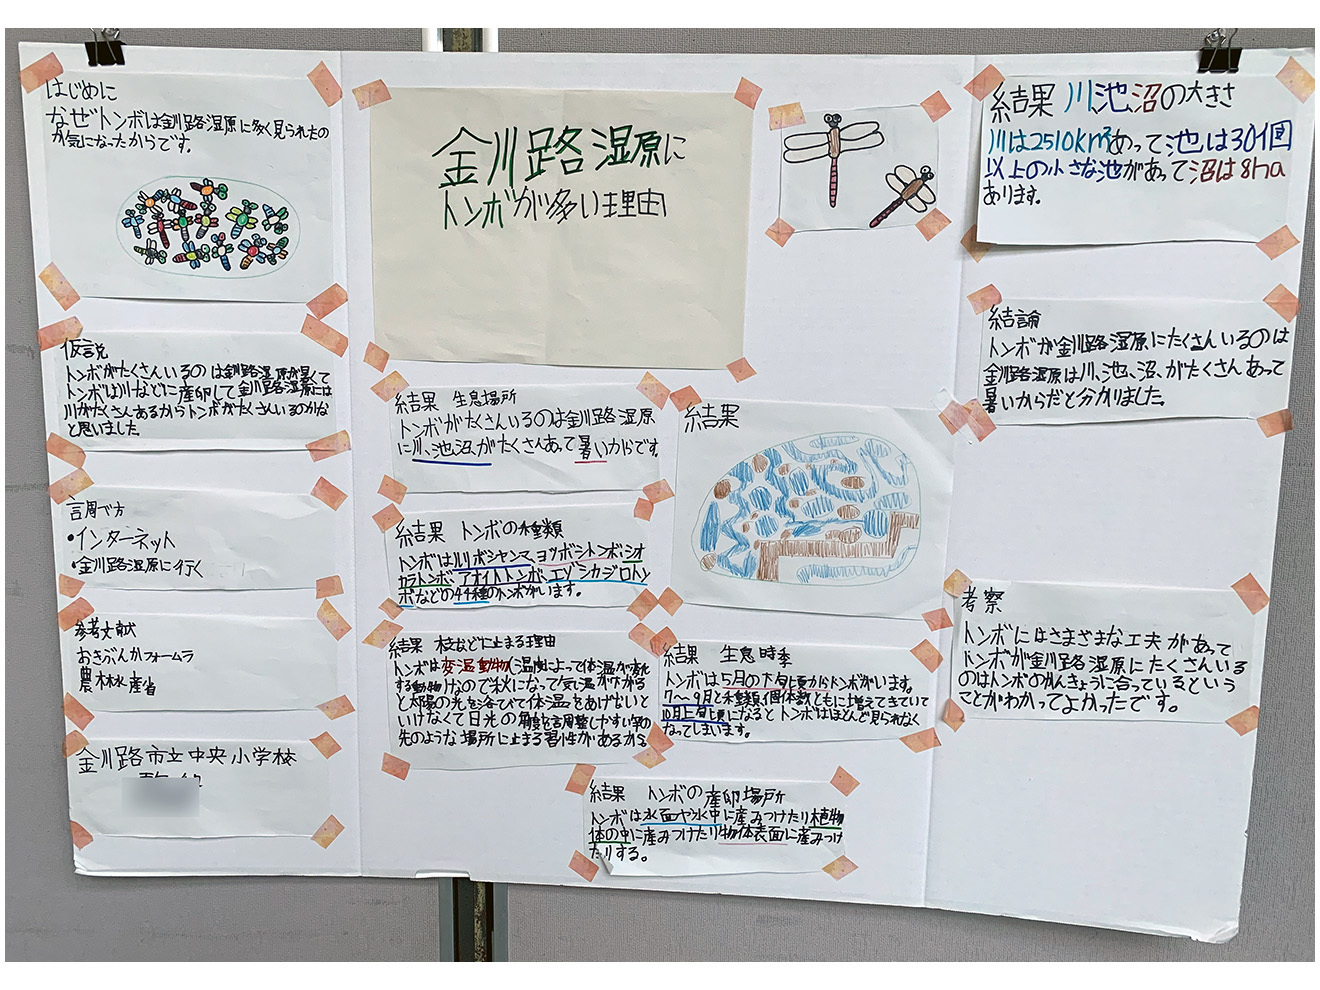 はじめに
なぜトンボは釧路湿原に多く見られたの
か気になったからです。
仮説
トンボがたくさんいるのは釧路湿原が暑くて
トンボは川などに産卵して釧路湿原には
川がたくさんあるからトンボがたくさんいるのかな
と思いました。
調べ方
•インターネット
•釧路湿原に行く
参考文献
おきぶんかフォーラム
農林水産省
釧路市立中央小学校
釧路湿原に
トンボが多い理由
結果 生息場所
トンボがたくさんいるのは釧路湿原
に川、池、沼、がたくさんあって暑いからです。
結果 トンボの種類
トンボはルリボシヤンマ、ヨツボシトンボ、シオ
カラトンボ、アオイトトンボ、エゾシカジロトン
ボなどの44種のトンボがいます。
結果 枝などに止まる理由
トンボは変温動物(温度によって体温が変化
する動物)なので秋になって気温が下がる
と太陽の光を浴びて体温をあげないと
いけなくて日光の角度を調整しやすい草の
先のような場所に止まる習性があるから
結果
結果 生息時季
トンボは5月の下旬頃からトンボがいます。
7〜9月と種類、個体数ともに増えてきていて
10月上旬頃になるとトンボはほとんど見られなく
なってしまいます。
結果 トンボの産卵場所
トンボは水面や水中に産みつけたり植物
体の中に産みつけたり物体表面に産みつけ
たりする。
結果 川、池、沼の大きさ
川は2510km²あって池は30個
以上の小さな池があって沼は8ha
あります。
結論
トンボが釧路湿原にたくさんいるのは
釧路湿原は川、池、沼、がたくさんあって
暑いからだと分かりました。
考察
トンボにはさまざまな工夫があって
トンボが釧路湿原にたくさんいる
のはトンボのかんきょうに合っているという
ことがわかってよかったです。